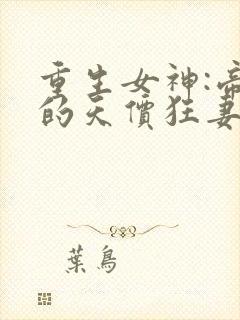 重生女神:帝
的天價狂妻
葉鳥